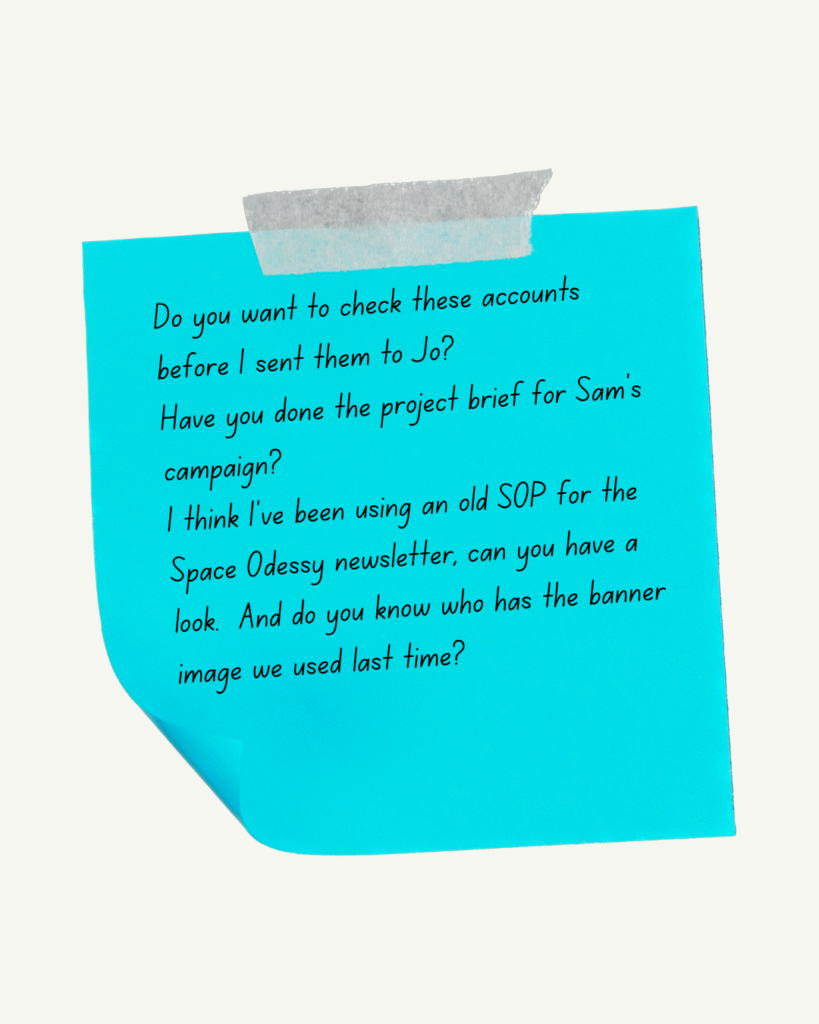 Do you want to check these accounts
before I sent them to Jo?
Have you done the project brief for Sam's
campaign?
I think I've been using an old SOP for the
Space Odessy newsletter, can you have a
look.  And do you know who has the banner
image we used last time?